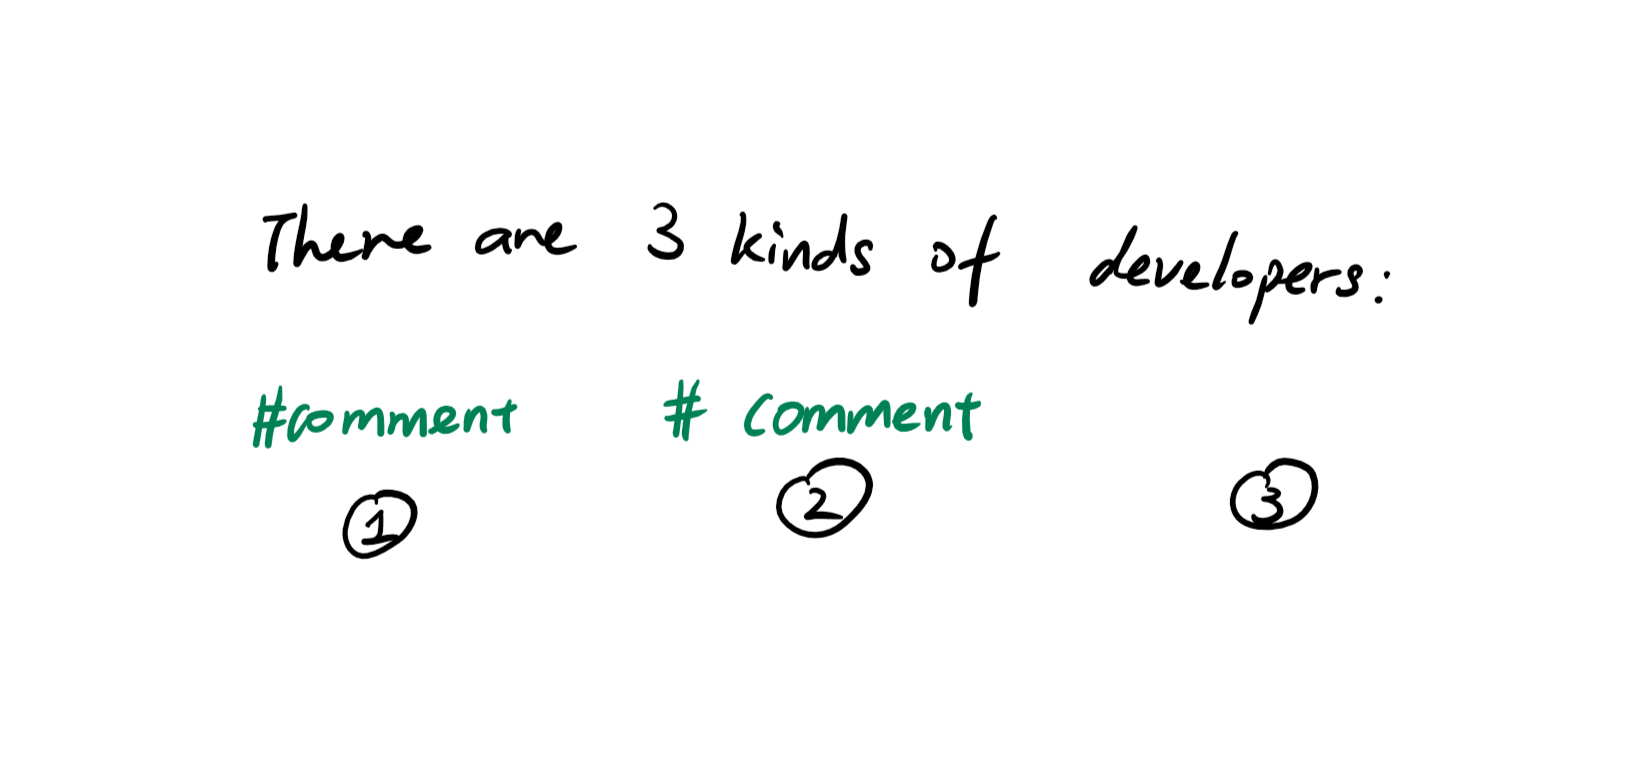 There are 3 kinds of developers:
#comment # comment
1 2 3